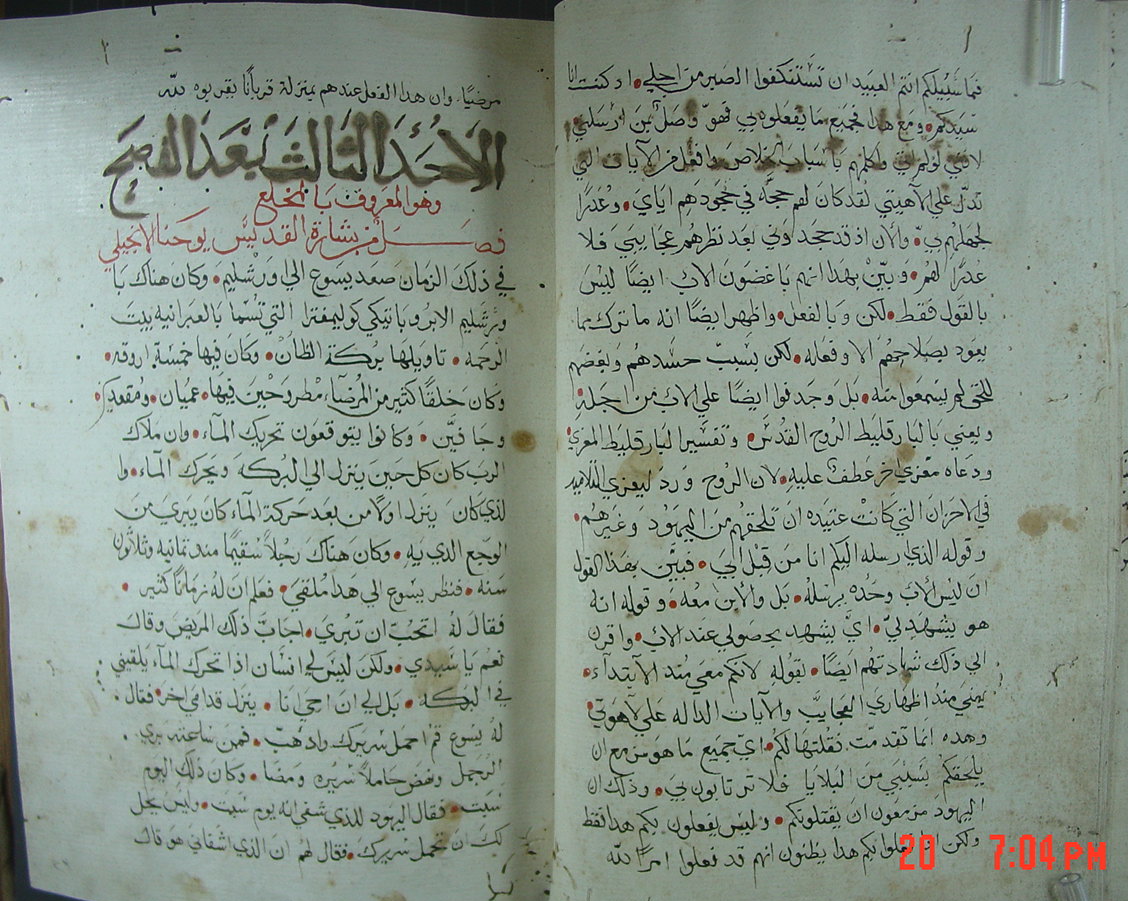 فما سبيلكم انتم العبيد ان تستنكفوا الصبر من اجلي • اذ كنت انا
سيدكم • ومع هذا فجميع ما يفعلوه بي فهو واصل بمن ارسلني •
لانني لو لم اتي واكلمهم باسباب الخلاص وافعل من الايات التي
تدل علي الاهيتي لقد كان لهم حجه في جحودهم اياي • وعذرًا
لجهلهم بي • والان اذ قد جحدوني بعد نظرهم عجايبي فلا
عذرًا لهم • وبين بهذا انهم باغضون الاب ايضًا ليس
بالقول فقط • لكن وبالفعل • واظهر ايضًا انه ما ترك شيا
يعود بصلاحهم الا وفعله • لكن بسبب حسدهم وبغضهم
للحق لم يسمعوا منه • بل وجدفوا ايضًا علي الاب من اجله
ويعني بالبارقليط الروح القدس • وتفسير البارقليط المعزي
ودعاه معزي اخر عطف عليه • لان الروح ورد ليعزي التلاميد
في الاحزان التي كانت عتيده ان تلحقهم من اليهود وغيرهم •
وقوله الذي ارسله اليكم انا من قبل ابي • فبين بهذا القول
ان ليس الاب وحده يرسله • بل والابن معه • وقوله انه
هو يشهد لي • اي يشهد بحصولي عند الاب • واقرن
الي ذلك شهادتهم ايضًا • بقوله لانكم معي مند الابتداء •
يعني مند اظهاري العجايب والايات الداله علي لاهوتي •
وهده انما تقدمت فقلتها لكم • اي جميع ما هو مزمع ان
يلحقكم بسببي من البلايا فلا ترتابون بي • وذلك ان
اليهود مزمعون ان يقتلوكم • وليس يفعلون بكم هدا فقط
ولكن اذا فعلوا بكم هدا يظنون انهم قد فعلوا امرًا لله
مرضيًا • وان هدا الفعل عندهم بمنزلة قربانًا يقربوه لله
الاحد الثالث بعد الفصح
وهو المعروف بالمخلع
فصل من بشارة القديس يوحنا الانجيلي
في ذلك الزمان صعد يسوع الي اورشليم • وكان هناك با
ورشليم الابروباتيكي كوليمفترا التي تسما بالعبرانيه بيت
الرحمه • تاويلها بركة الظان • وكان فيها خمسة اروقه •
وكان خلقًا كثير من المرضاء مطروحين فيها • عميان • ومقعدين •
وجافين • وكانوا يتوقعون تحريك الماء • وان ملاك
الرب كان كل حين ينزل الي البركه ويحرك الماء • وا
لذي كان ينزل اولًا من بعد حركة الماء كان يبري من
الوجع الدي به • وكان هناك رجلًا سقيمًا مند تمانيه وثلاثون
سنه • فنظر يسوع الي هدا ملقي • فعلم ان له زمانًا كثير •
فقال له اتحب ان تبري • اجاب ذلك المريض وقال
نعم يا سيدي • ولكن ليس لي انسان اذا تحرك الماء يلقيني
في البركه • بل الي ان اجي انا • ينزل قدامي اخر • فقال •
له يسوع قم احمل سريرك واذهب • فمن ساعته بري •
الرجل ونهض حاملًا سريره ومضا • وكان ذلك اليوم
سبت • فقال اليهود للذي شفي انه يوم سبت • وليس يحل
لك ان تحمل سريرك • فقال لهم ان الذي اشفاني هو قال
20 7:04 PM